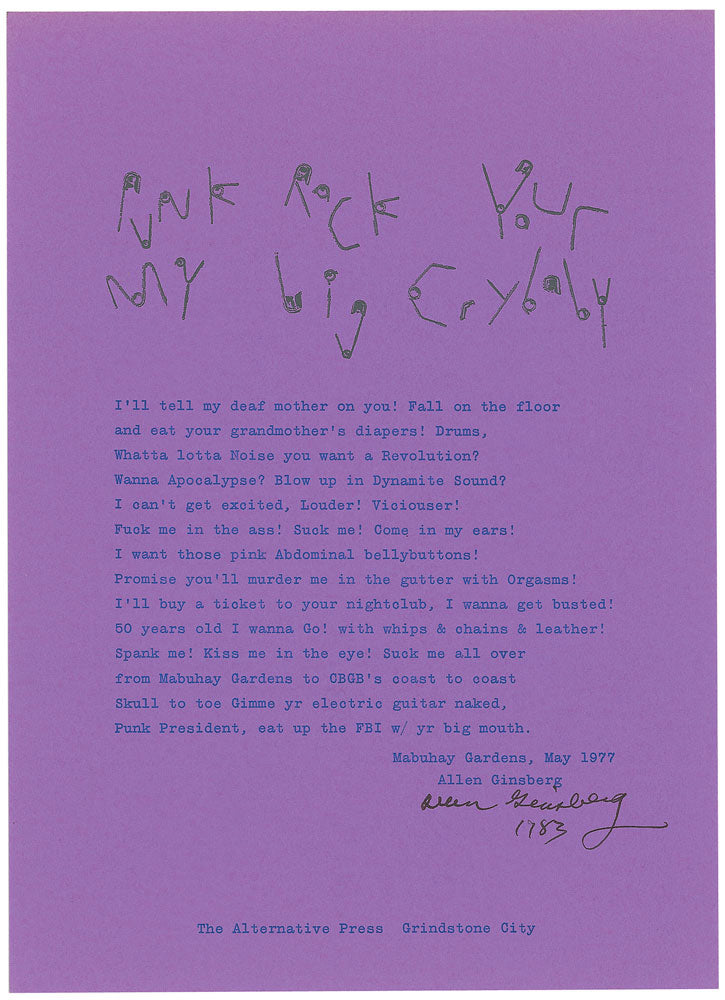 Punk Rock Your
My big Crybaby
I'll tell my deaf mother on you! Fall on the floor
and eat your grandmother's diapers! Drums,
Whatta lotta Noise you want a Revolution?
Wanna Apocalypse? Blow up in Dynamite Sound?
I can't get excited, Louder! Viciouser!
Fuck me in the ass! Suck me! Come in my ears!
I want those pink Abdominal bellybuttons!
Promise you'll murder me in the gutter with Orgasms!
I'll buy a ticket to your nightclub, I wanna get busted!
50 years old I wanna Go! with whips & chains & leather!
Spank me! Kiss me in the eye! Suck me all over
from Mabuhay Gardens to CBGB's coast to coast
Skull to toe Gimme yr electric guitar naked,
Punk President, eat up the FBI w/ yr big mouth.
Mabuhay Gardens, May 1977
Allen Ginsberg
Allen Ginsberg
1983
The Alternative Press Grindstone City